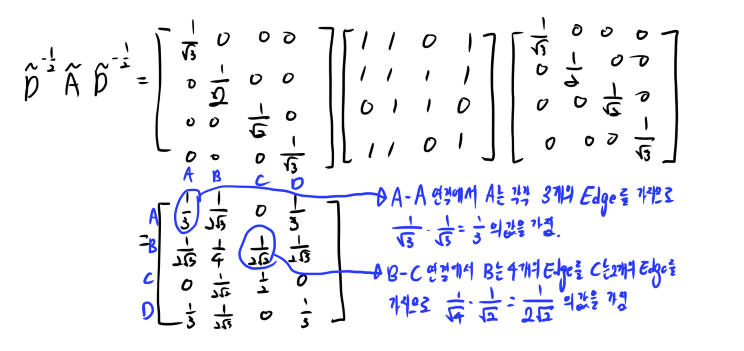 D̃^{-1/2} Ã D̃^{-1/2} = [1/√3 0 0 0; 0 1/2 0 0; 0 0 1/√2 0; 0 0 0 1/√3] [1 1 0 1; 1 1 1 1; 0 1 1 0; 1 1 0 1] [1/√3 0 0 0; 0 1/2 0 0; 0 0 1/√2 0; 0 0 0 1/√3]
A B C D
= [A 1/3 1/2√3 0 1/3
B 1/2√3 1/4 1/2√2 1/2√3
C 0 1/2√2 1/2 0
D 1/3 1/2√3 0 1/3]
A-A 연결에서 A는 각각 3개의 Edge를 가지므로
1/√3 · 1/√3 = 1/3 의 값을 가짐.
B-C 연결에서 B는 4개의 Edge를 C는 2개의 Edge를
가지므로 1/√4 · 1/√2 = 1/2√2 의 값을 가짐